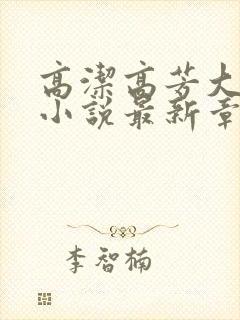 高潔高芳大
小說最新章
李智楠